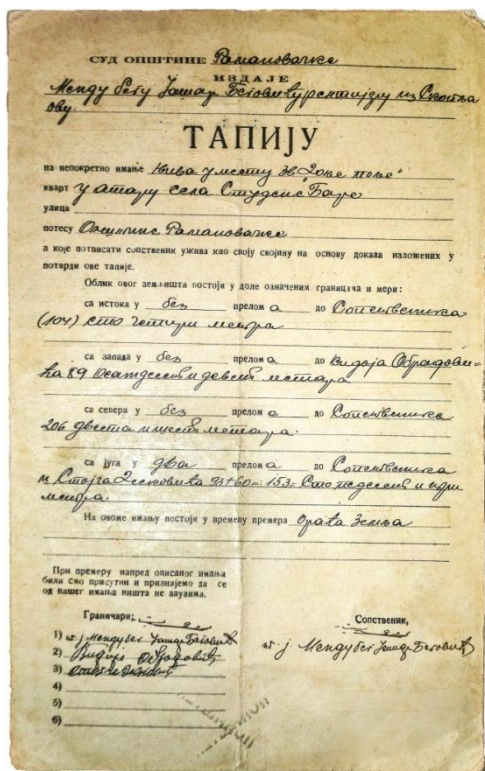 СУД ОПШТИНЕ Рамановачке
ИЗДАЈЕ
Менду бегу Јашар Беговићу рентијеру из Скопља
ову
ТАПИЈУ
на непокретно имање Њива у месту зв. Доње поље"
кварт у атару села Студене Баре
улица
потесу Општине Рамановачке
а које потписати сопственик ужива као своју својину на основу доказа наложених у
потврди ове тапије.
Облик овог земљишта постоји у доле означеним границама и мери:
са истока у без прелома до Сопственика
(104) сто четири метра
са запада у без прелома до Видоја Обрадови-
ћа 89 осамдесет и девет метара
са севера у без прелома до Сопственика
206 двеста и шест метара
са југа у два прелома до Сопственика
и Стојча 93+60=153= Сто педесет и три
метра.
На овоме имању постоји у времену премера ораћа земља
При премеру напред описаног имања
били смо присутни и признајемо да се
од нашег имања ништа не заузима.
Граничари:
1) Мендубег Јашар Беговић
2) Видоје Обрадовић
3)
4)
5)
6)
Сопственик,
Мендубег Јашар Беговић